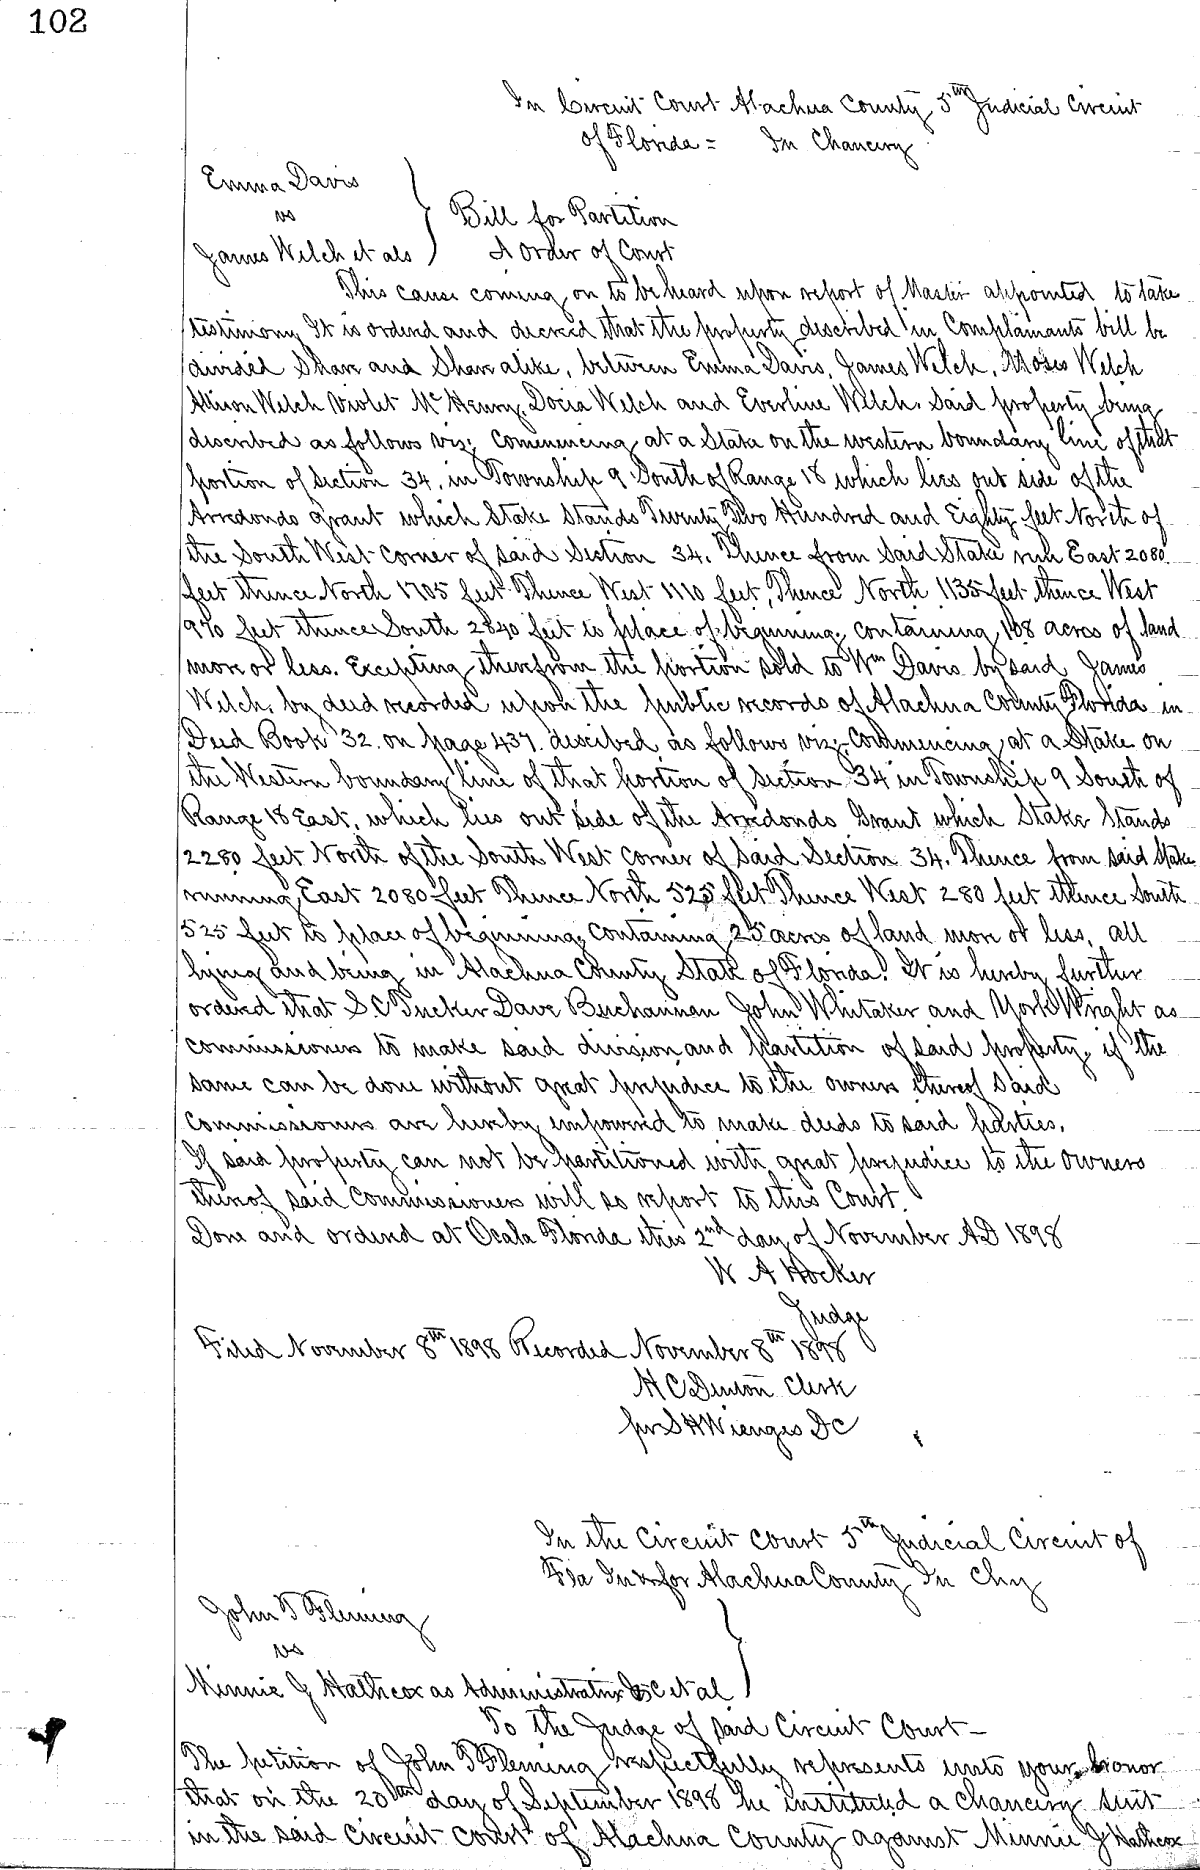 102
In Circuit Court Alachua County, 5th Judicial Circuit
of Florida = In Chancery
Emma Davis
vs
James Welch et als
Bill for Partition
A Order of Court
This cause coming on to be heard upon report of Master appointed to take
testimony It is ordered and decreed that the property described in Complainants bill be
divided Share and Share alike, between Emma Davis, James Welch, Moses Welch
Allison Welch Violet McHenry, Docia Welch and Everline Welch. Said property being
described as follows viz; Commencing at a Stake on the western boundary line of that
portion of section 34, in Township 9 South of Range 18 which lies out side of the
Arredondo grant which Stake Stands Twenty Two Hundred and Eighty feet North of
the South West corner of said Section 34. Thence from Said Stake run East 2080
feet thence North 1705 feet Thence West 1110 feet, Thence North 1135 feet thence West
970 feet thence South 2840 feet to place of beginning, containing 108 acres of land
more or less. Excepting therefrom the portion sold to Wm Davis by said James
Welch, by deed recorded upon the public records of Alachua County Florida in
Deed Book 32. on page 437. descibed as follows viz; Commencing at a Stake on
the Western boundary line of that portion of section 34 in Township 9 South of
Range 18 East, which lies out side of the Arredondo Grant which Stake Stands
2280 feet North of the South West corner of Said Section 34. Thence from said Stake
running East 2080 feet Thence North 525 feet Thence West 280 feet thence South
525 feet to place of beginning, containing 25 acres of land more or less, all
lying and being in Alachua County State of Florida. It is hereby further
ordered that S C Tucker Dave Buchannan John Whitaker and York Wright as
commissioners to make said division and partition of said property, if the
same can be done without great prejudice to the owners thereof Said
commissioners are hereby empowered to make deeds to said parties.
If said property can not be partitioned with great prejudice to the owners
thereof said commissioners will so report to this Court.
Done and ordered at Ocala Florida this 2nd day of November AD 1898
W A Hocker
Judge
Filed November 8th 1898 Recorded November 8th 1898
H C Denton Clerk
per S H Wienges DC
In the Circuit Court 5th Judicial Circuit of
Fla In & for Alachua County In Chy
John T Fleming
vs
Minnie J Hathcox as Administratrix &c et al
To the Judge of said Circuit Court—
The petition of John T Fleming respectfully represents unto your honor
that on the 20th day of September 1898 he instituted a chancery suit
in the said Circuit Court of Alachua County against Minnie J Hathcox